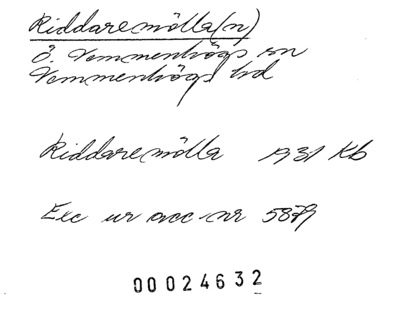 Riddaremölla(n)
Ö. Vemmenhögs sn
Vemmenhögs hd
Riddaremölla 1931 Kb
Exc ur acc nr 5879
00024632